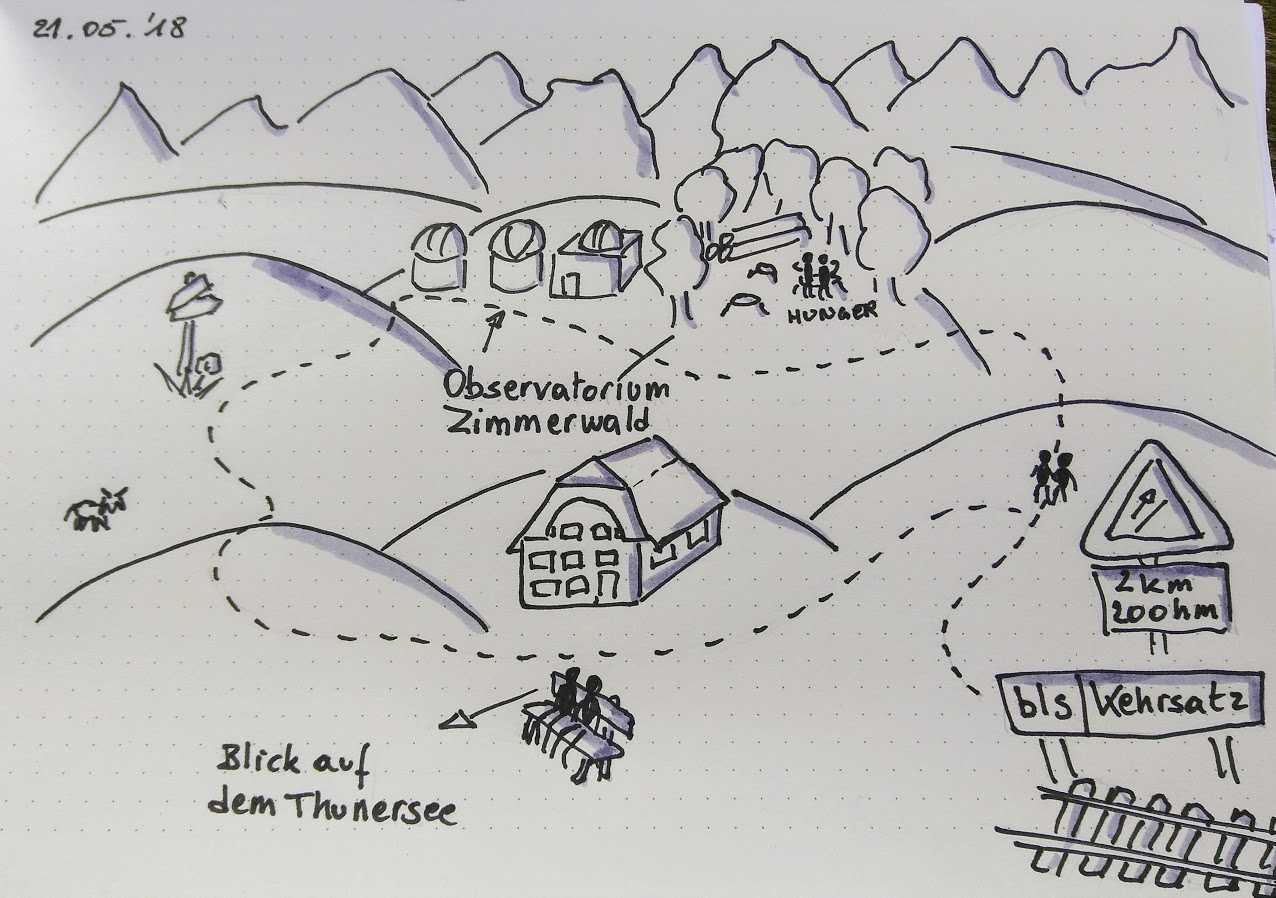 21.05.'18
HUNGER
Observatorium
Zimmerwald
2km
200hm
bls Kehrsatz
Blick auf
dem Thunersee